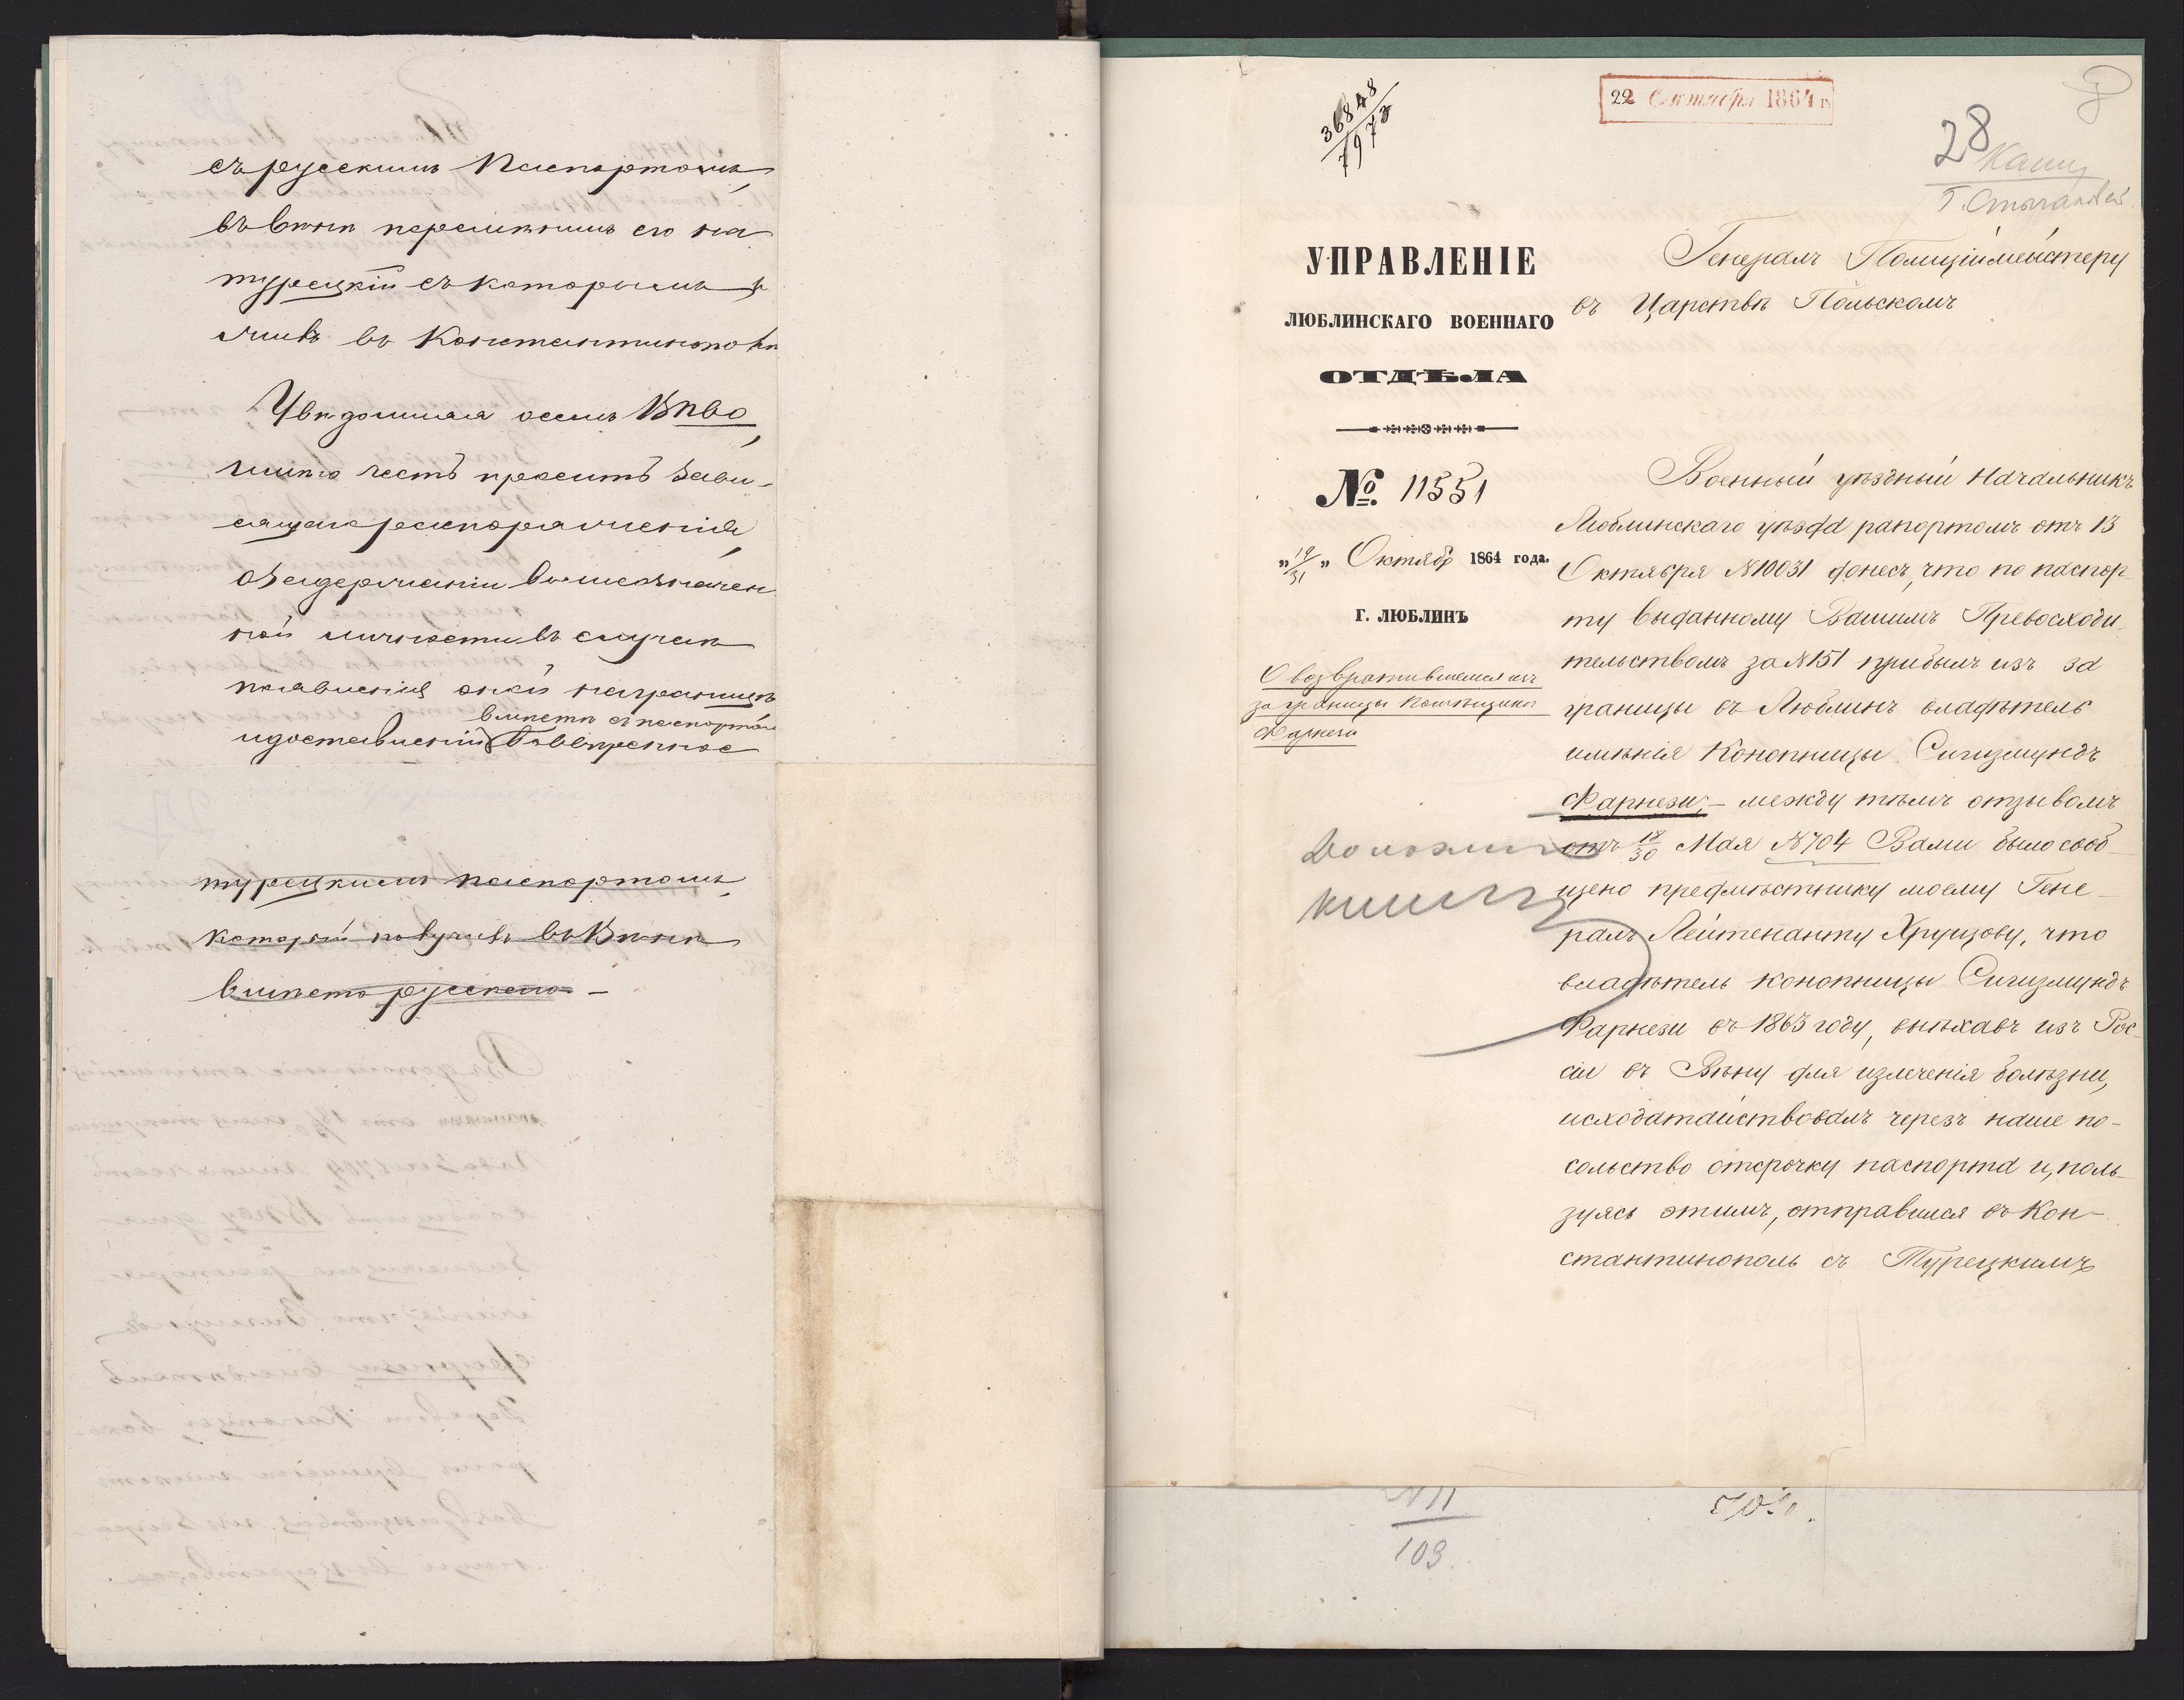 съ русскимъ паспортомъ,
въ Вѣнѣ перемѣнилъ его на
турецкій съ которымъ и
жилъ въ Константинополѣ
Увѣдомляя о семъ ВПво,
имѣю честь просить зави-
сящаго распоряженія,
о задержаніи вышеозначен
ной личности въ случаѣ
появленія оной на границѣ
вмѣстѣ съ паспортомъ
и доставленіи
турецкимъ паспортомъ,
который получивъ въ Вѣнѣ
вмѣсто русскаго —
36848
7973
22 Октября 1864 г.
28
УПРАВЛЕНІЕ
ЛЮБЛИНСКАГО ВОЕННАГО
ОТДѢЛА
№. 11551
„19/31„ Октября 1864 года.
Г. ЛЮБЛИНЪ
О возвратившемся изъ
за границы помѣщикѣ
Фарнези
Генералъ Полиціймейстеру
въ Царствѣ Польскомъ
Военный уѣздный Начальникъ
Люблинскаго уѣзда рапортомъ отъ 13
Октября №10031 донесъ, что по паспор-
ту выданному Вашимъ Превосходи-
тельствомъ за №151 прибылъ изъ за
границы въ Люблинъ владѣтель
имѣнія Конопницы Сигизмундъ
Фарнези; – между тѣмъ отзывомъ
отъ 18/30 Мая №704 Вами было сооб-
щено предмѣстнику моему Гене-
ралъ Лейтенанту Хрущову, что
владѣтель Конопницы Сигизмундъ
Фарнези въ 1863 году, выѣхавъ изъ Рос-
сіи въ Вѣну для излеченія болѣзни,
исходатайствовалъ черезъ наше по-
сольство отсрочку паспорта и, поль-
зуясь этимъ, отправился въ Кон-
стантинополь съ Турецкимъ
103